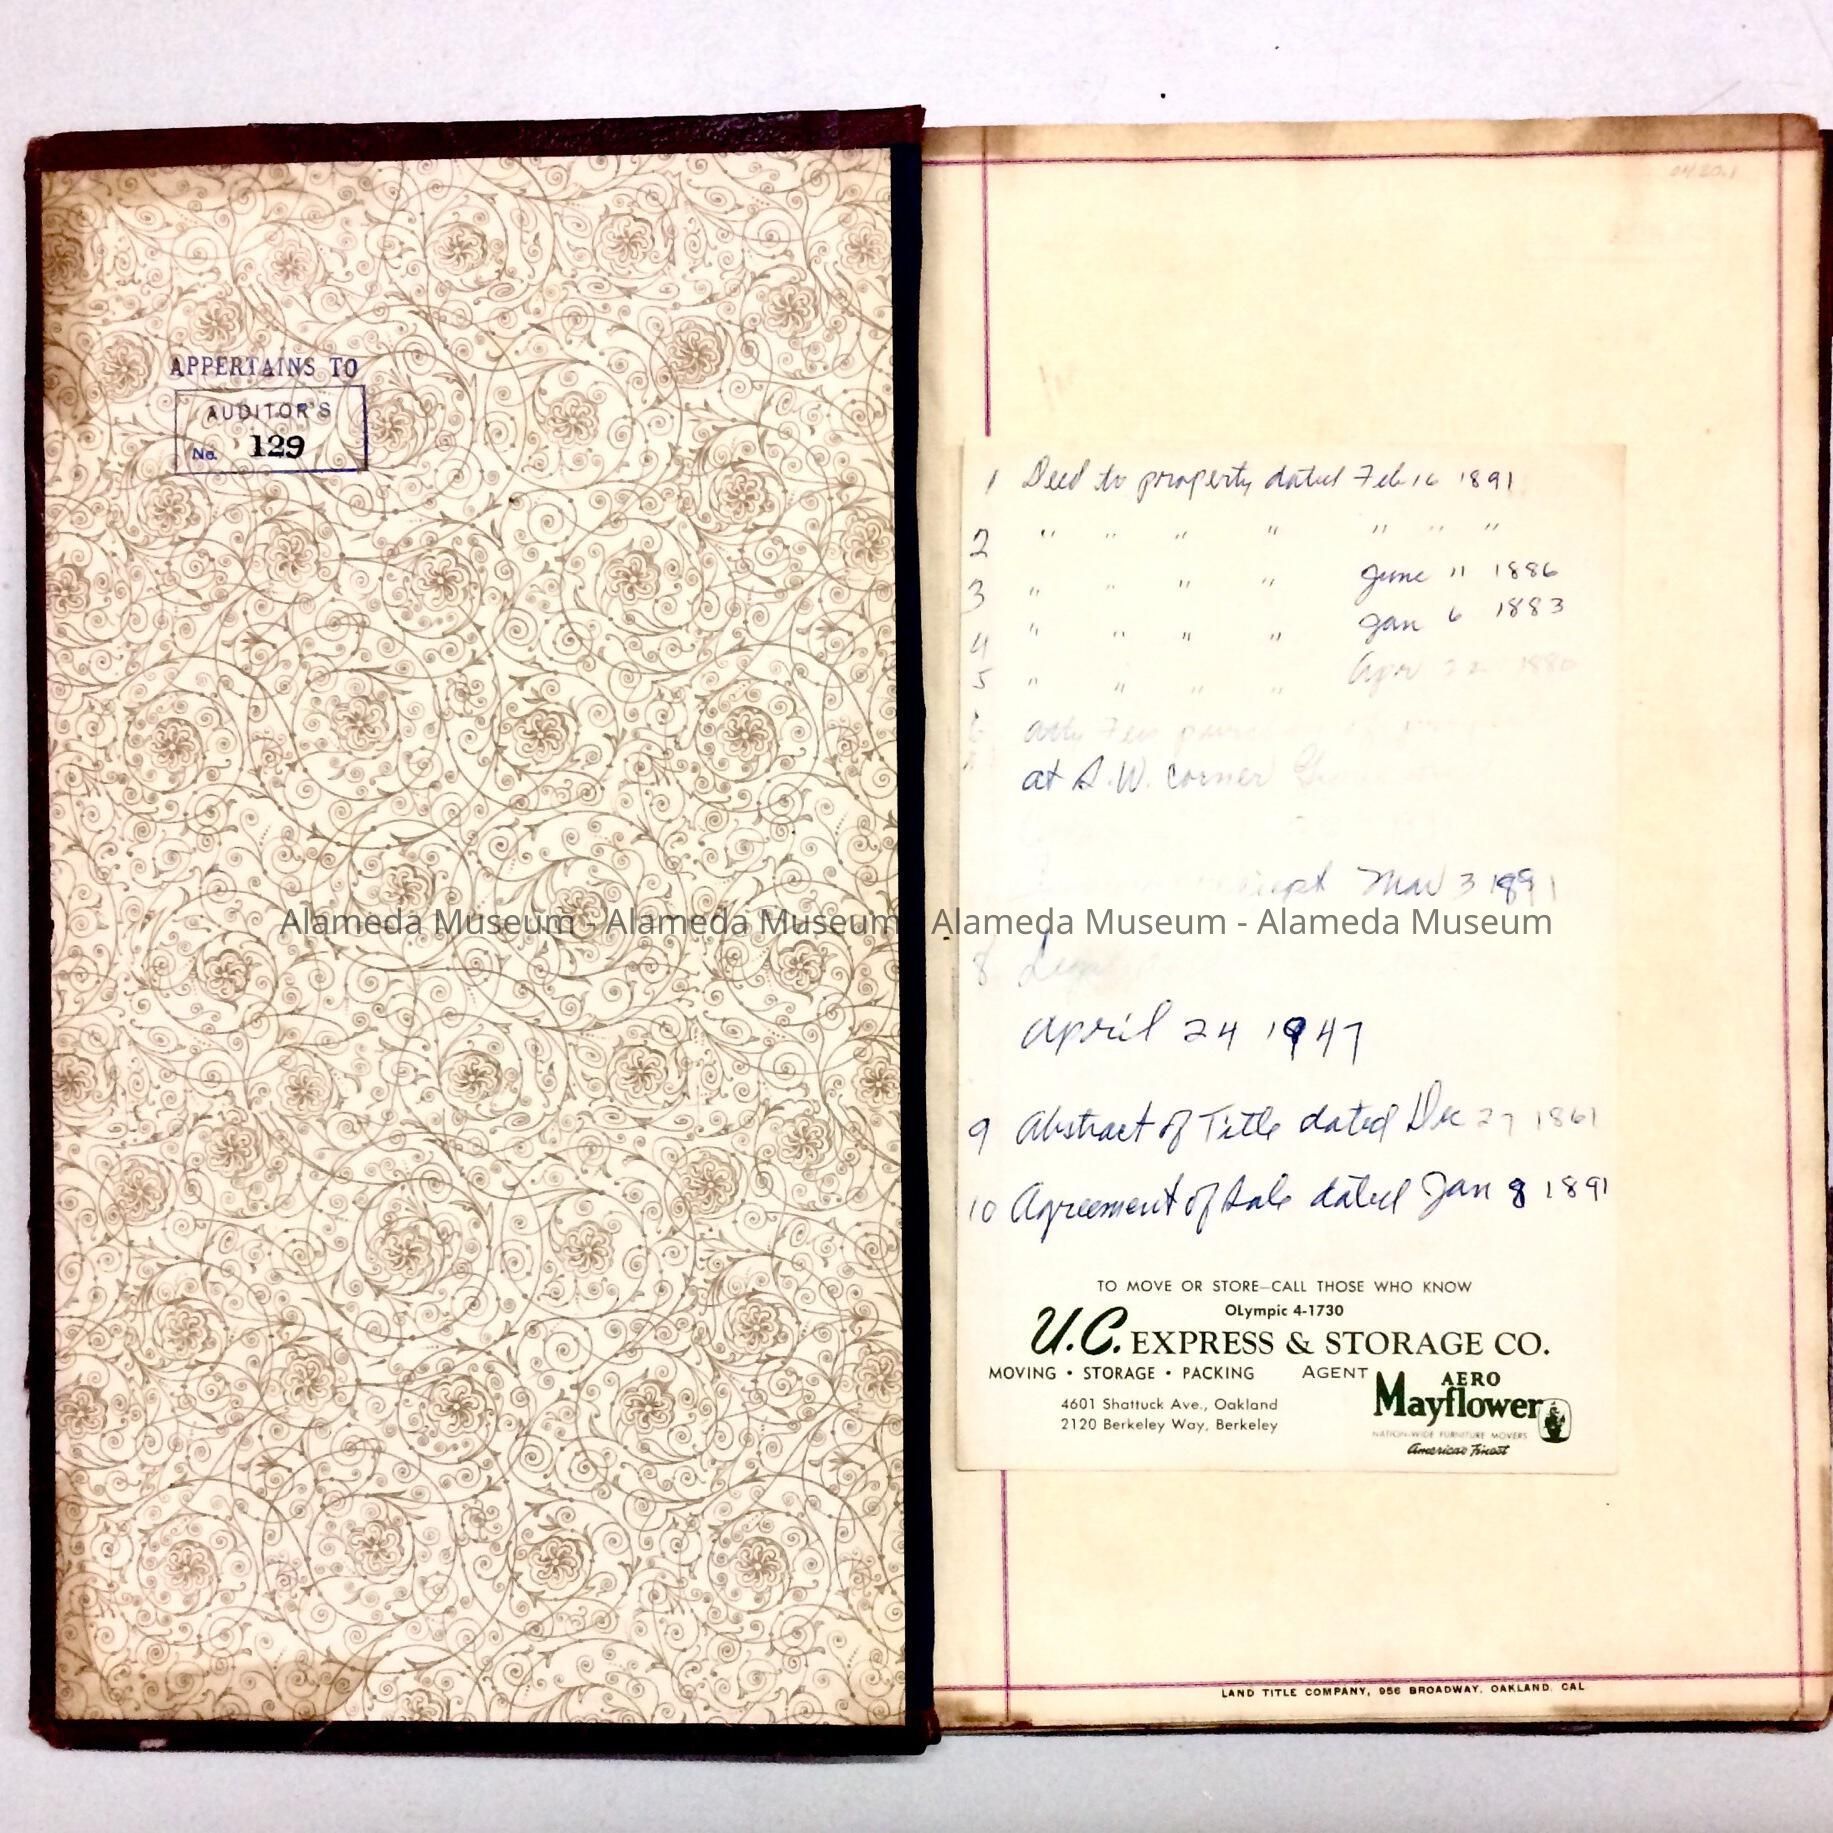 APPERTAINS TO
AUDITOR'S
No. 129
04.20.1
1 Deed to property dated Feb 16 1891
2 " " " " " " "
3 " " " " June 11 1886
4 " " " " Jan 6 1883
5 " " " " Apr 22 1880
6
at S.W. corner
Mar 3 1891
Alameda Museum - Alameda Museum - Alameda Museum - Alameda Museum
8
April 24 1947
9 Abstract of Title dated Dec 27 1861
10 Agreement of Sale dated Jan 8 1891
TO MOVE OR STORE—CALL THOSE WHO KNOW
OLympic 4-1730
U.C. EXPRESS & STORAGE CO.
MOVING • STORAGE • PACKING AGENT
AERO
Mayflower
4601 Shattuck Ave., Oakland
2120 Berkeley Way, Berkeley
NATION-WIDE FURNITURE MOVERS
America's Finest
LAND TITLE COMPANY, 956 BROADWAY, OAKLAND, CAL